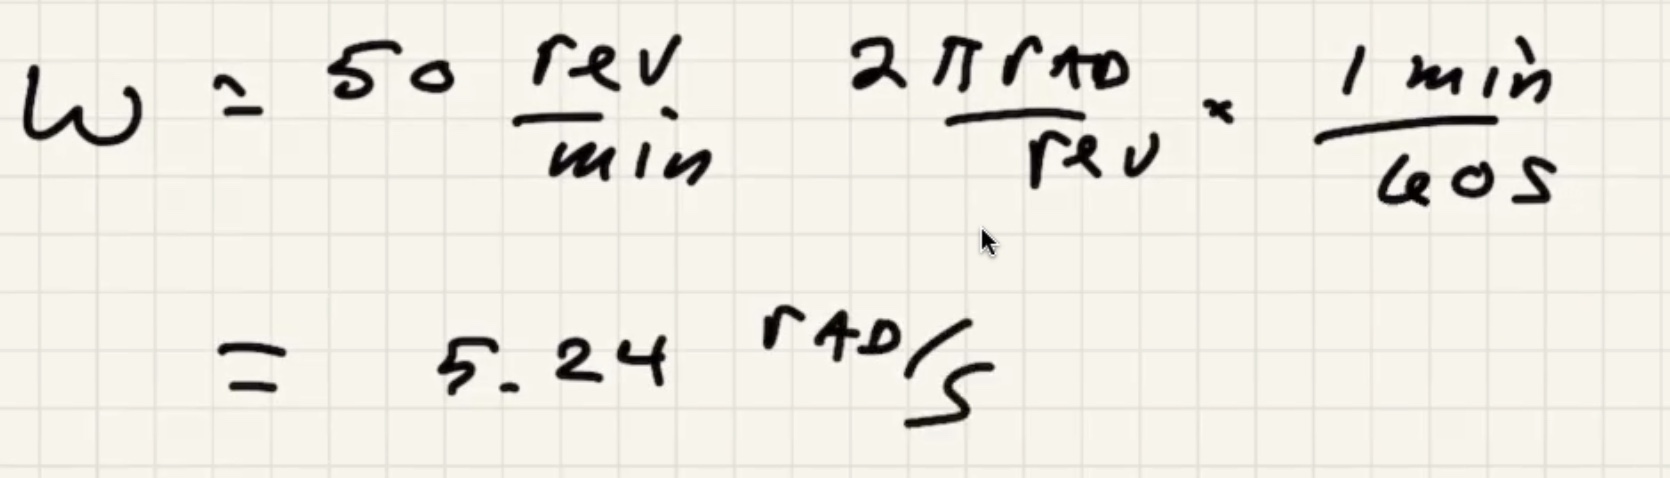 ω = 50 rev/min 2π rAD/rev × 1 min/60s
= 5.24 rAD/s